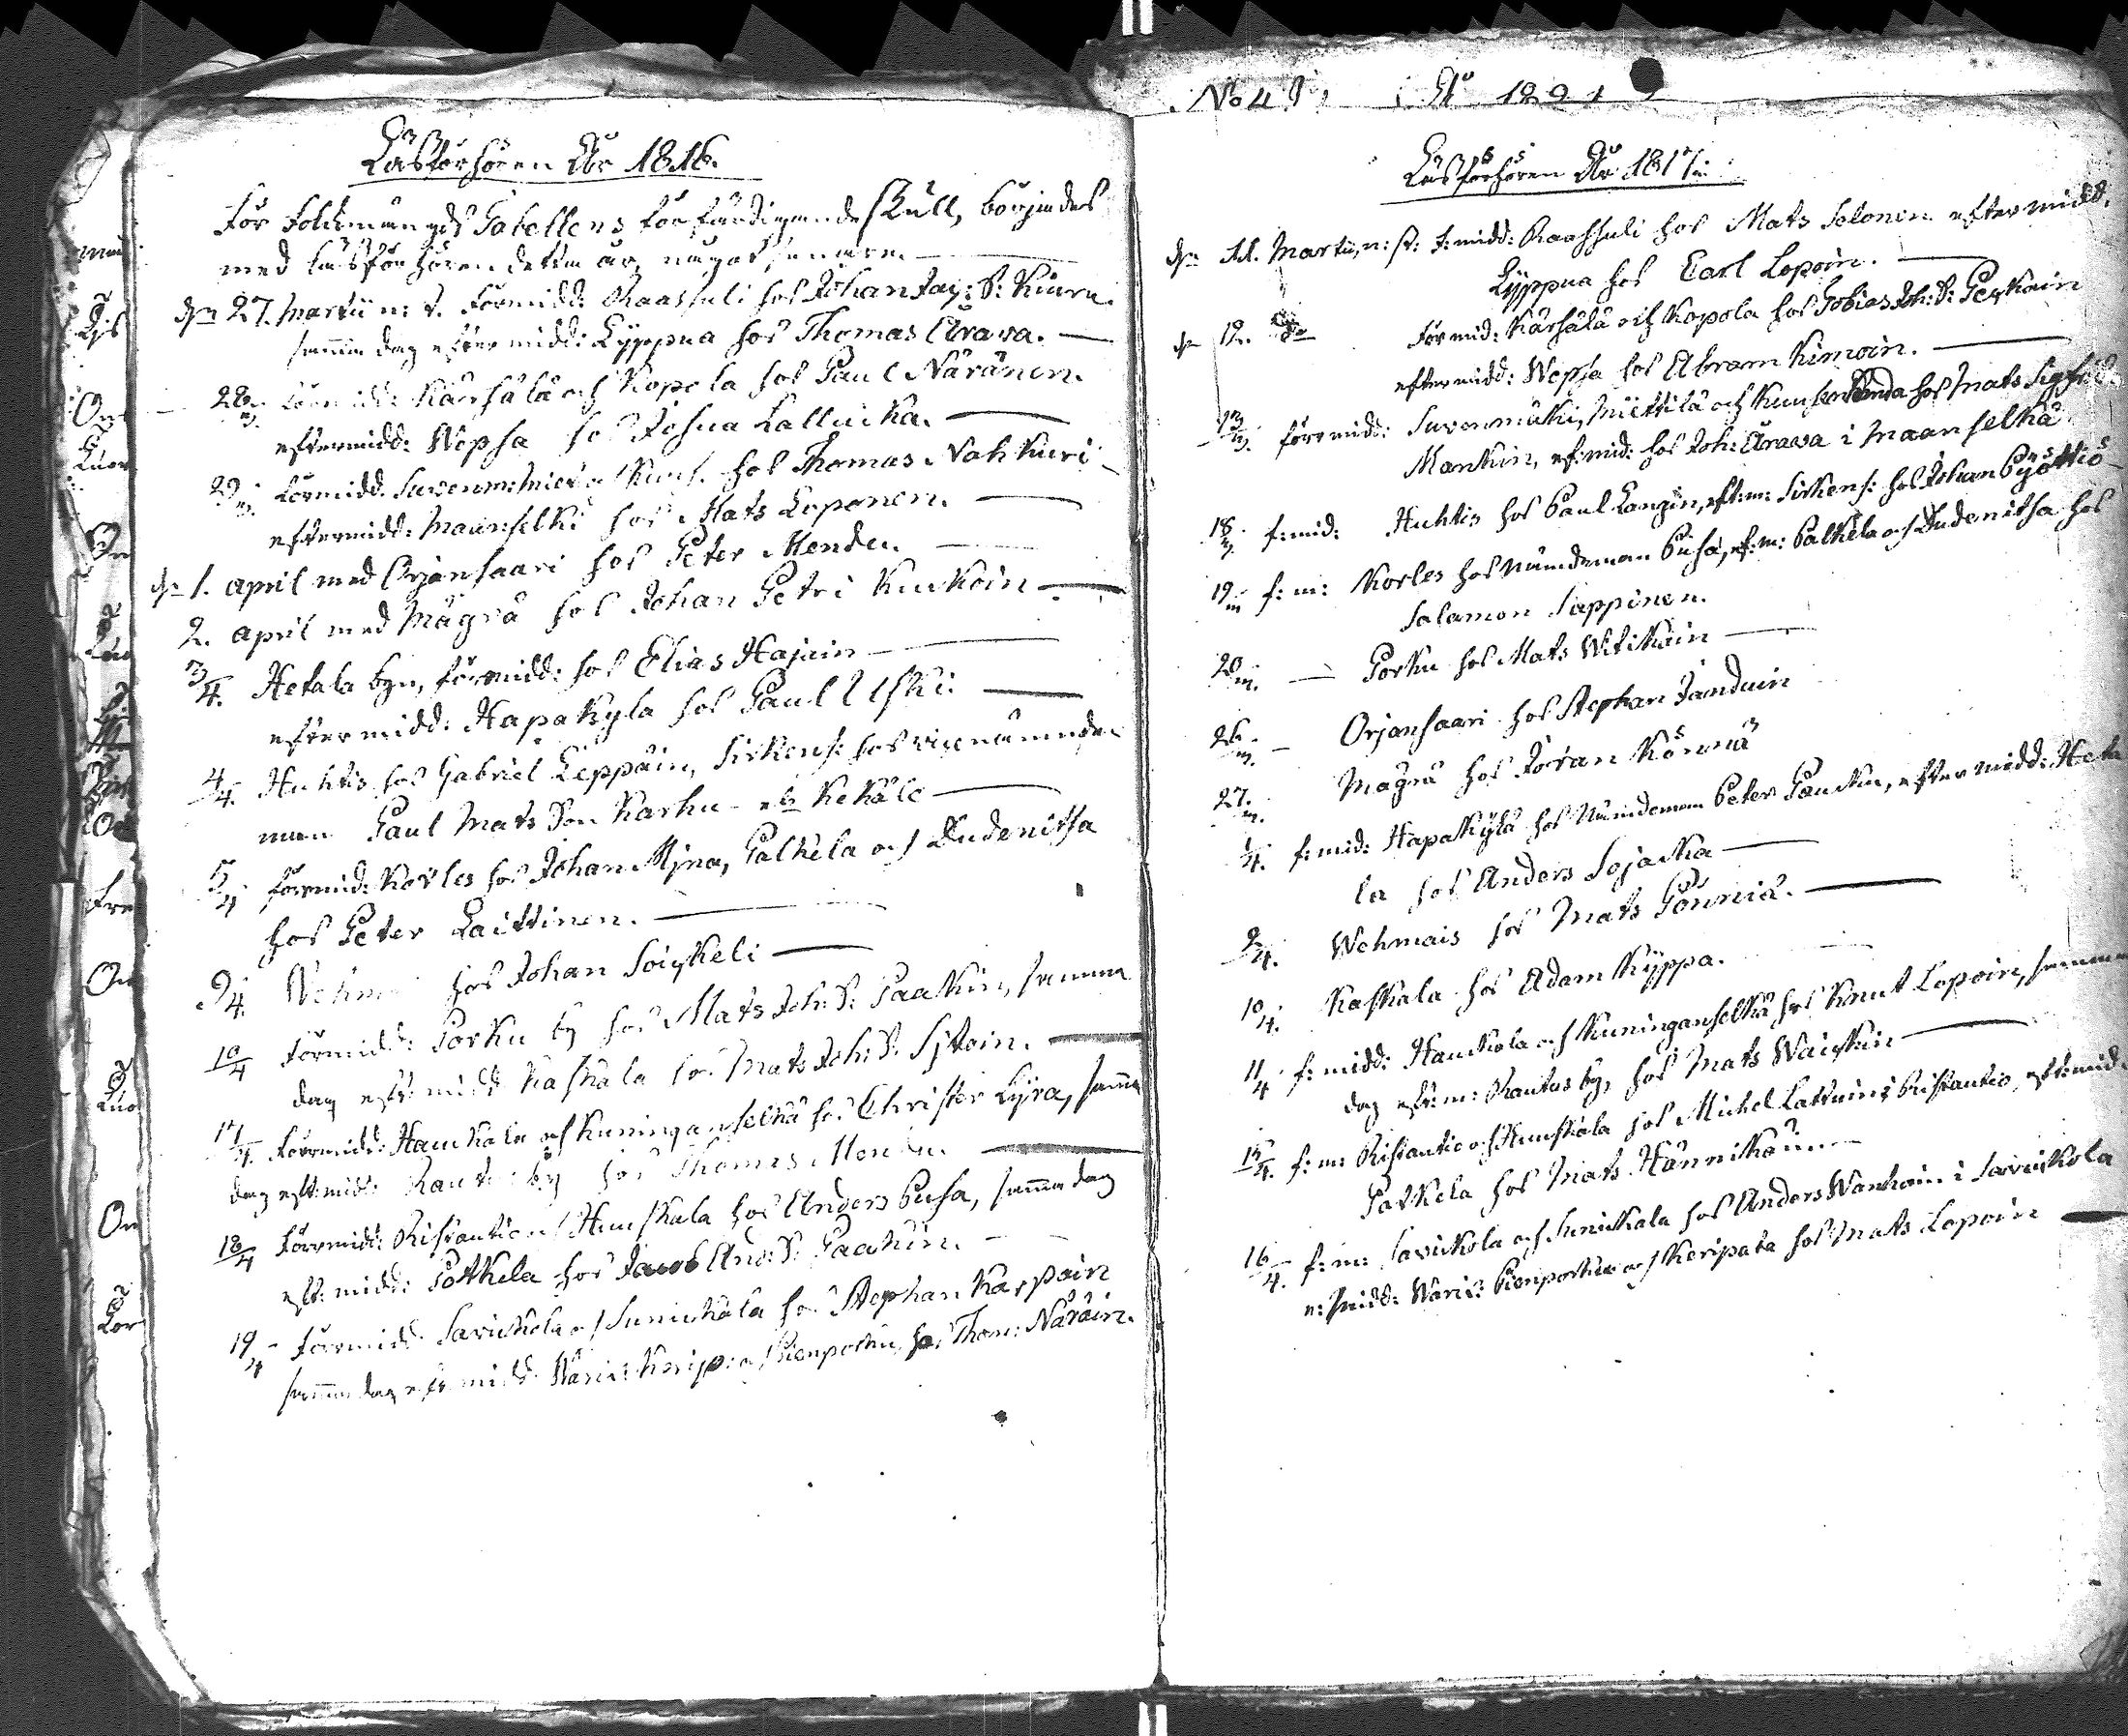 Läsförhören År 1816.
För Folkmängds Tabellens förfärdigande skull, börjades
med läsförhören detta år, något senare.
den 27. Martii n: s. Förmidd: Raasuli hos Johan Joh: S: Kiuru.
samma dag eftermidd: Lyppua hos Thomas Ärawa.
28/3. Förmidd: Kärsälä och Kopola hos Paul Näränen.
eftermidd: Wepsa hos Josua Lallucka.
29/3. Förmidd. Suvenm: Miet: och Kuns. hos Thomas Nahkuri
eftermidd: Maanselkä hos Mats Loponen.
den 1. April med Orjansaari hos Peter Mende.
2. April med Mägrä hos Johan Petri Kuckoin
3/4. Hetala byn, förmidd: hos Elias Hajain
eftermidd: Hapakyla hos Paul Uski.
4/4. Huhtis hos Gabriel Leppäin, Sirkens: hos vice nämnde
man Paul Mats Son Karhu Kekäle
5/4 förmid: Korles hos Johan Myra, Palkela och Dudenitsa
hos Peter Laittinen.
9/4. Wehm hos Johan Soickeli
10/4 Förmidd: Porku by hos Mats Joh: S: Paakin, samma
dag eft: midd: Kaskala hos Mats Joh: S: Sitoin.
17/4. Förmidd: Hauckala och Kuninganselkä hos Christer Lyra, samma
dag eft: midd: Rautus by hos Thomas Mende.
18/4 Förmidd: Ristautio och Huuskala hos Anders Pusa, samma dag
eft: midd: Potkela hos Jacob And: S: Paakin.
19/4 Förmidd: Savickola och Sunickala hos Stephan Karpain
samma dag eft: midd: Waris: Kerip: och Pienporku hos Thom: Näräin.
No 4 År 1821
Läsförhören År 1817:
den 11. Martii, n: st: f:midd: Raasuli hos Mats Solonen eftermidd.
Lyppua hos Carl Lopoin.
d 12. Förmid: Kärsälä och Kopola hos Tobias Joh: S: Peckain
eftermidd: Wepsa hos Abram Kimoin.
13/3. förmidd: Suvenmäki, Miettilä och Kunsenranda hos Mats Sigfrids
Mankin, ef:mid: hos Joh: Ärawa i Maanselkä
18/3. f:mid: Huhtis hos Paul Langin, eft:m: Sirkens: hos Johan Pyöttiö
19/3 f: m: Korles hos Nämndeman Pusa, ef: m: Palkela och Dudenitsa hos
Salamon Sappinen.
20/3. Porku hos Mats Witikäin
26/3. Orjansaari hos Stephan Jamduin
27/3. Mägrä hos Jöran Könnä
1/4. f:mid: Hapakylä hos Nämndeman Peter Paucku, eftermidd: Heta
la hos Anders Sojacka
9/4. Wehmais hos Mats Pöuniä.
10/4. Kaskala hos Adam Kyppa.
11/4 f:midd: Hauckola och Kuninganselkä hos Knut Lopoin, samma
dag eft: m: Rautus by, hos Mats Waickin
15/4. f: m: Ristautio och Huuskala hos Michel Lattuin i Ristautio, eft:mid:
Potkela hos Mats Hännikäin
16/4. f: m: Savickola och Sunickala hos Anders Wanhain i Savickola
e: midd: Waris: Pienporku och Keripata hos Mats Lopoin